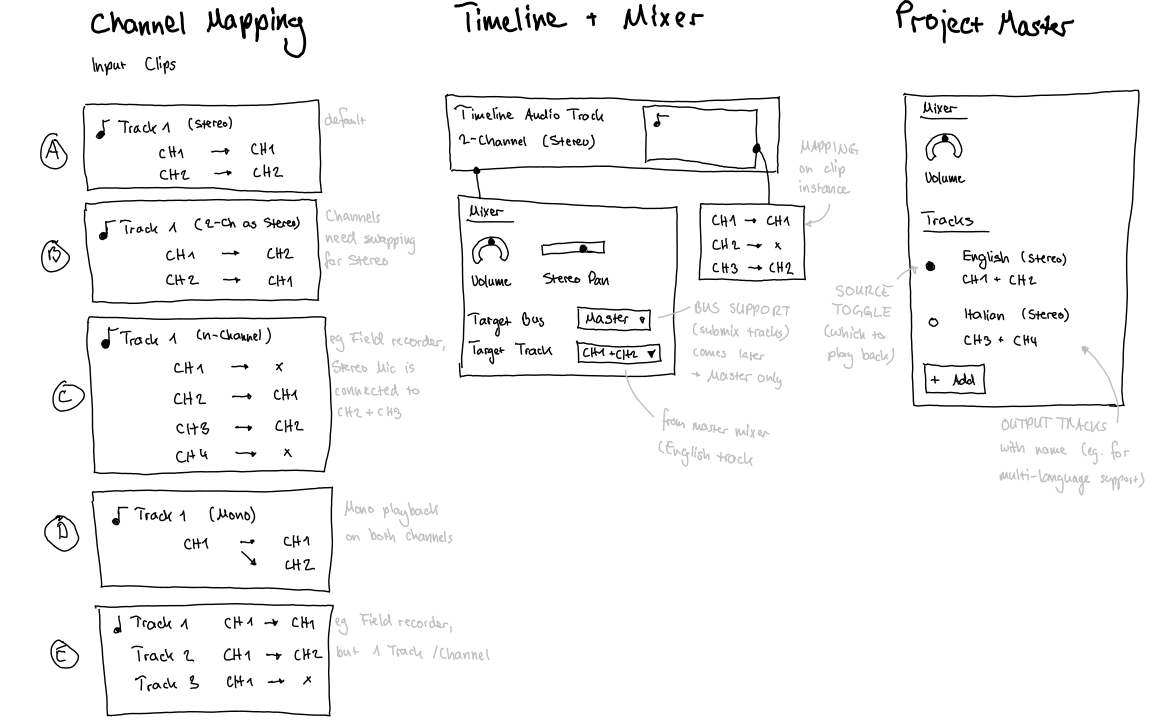 Channel Mapping
Input Clips
A
Track 1 (Stereo)
CH1 → CH1
CH2 → CH2
default
B
Track 1 (2-Ch as Stereo)
CH1 → CH2
CH2 → CH1
Channels
need swapping
for Stereo
C
Track 1 (n-Channel)
CH1 → x
CH2 → CH1
CH3 → CH2
CH4 → x
eg Field recorder,
Stereo Mic is
connected to
CH2 + CH3
D
Track 1 (Mono)
CH1 → CH1
↘ CH2
Mono playback
on both channels
E
Track 1 CH1 → CH1
Track 2 CH1 → CH2
Track 3 CH1 → x
eg Field recorder,
but 1 Track / Channel
Timeline + Mixer
Timeline Audio Track
2-Channel (Stereo)
MAPPING
on clip
instance
CH1 → CH1
CH2 → x
CH3 → CH2
Mixer
Volume
Stereo Pan
Target Bus Master ▾
Target Track CH1 + CH2 ▼
BUS SUPPORT
(submix tracks)
comes later
→ Master only
from master mixer
(English track
Project Master
Mixer
Volume
Tracks
English (Stereo)
CH1 + CH2
Italian (Stereo)
CH3 + CH4
+ Add
SOURCE
TOGGLE
(which to
play back)
OUTPUT TRACKS
with name (eg. for
multi-language support)